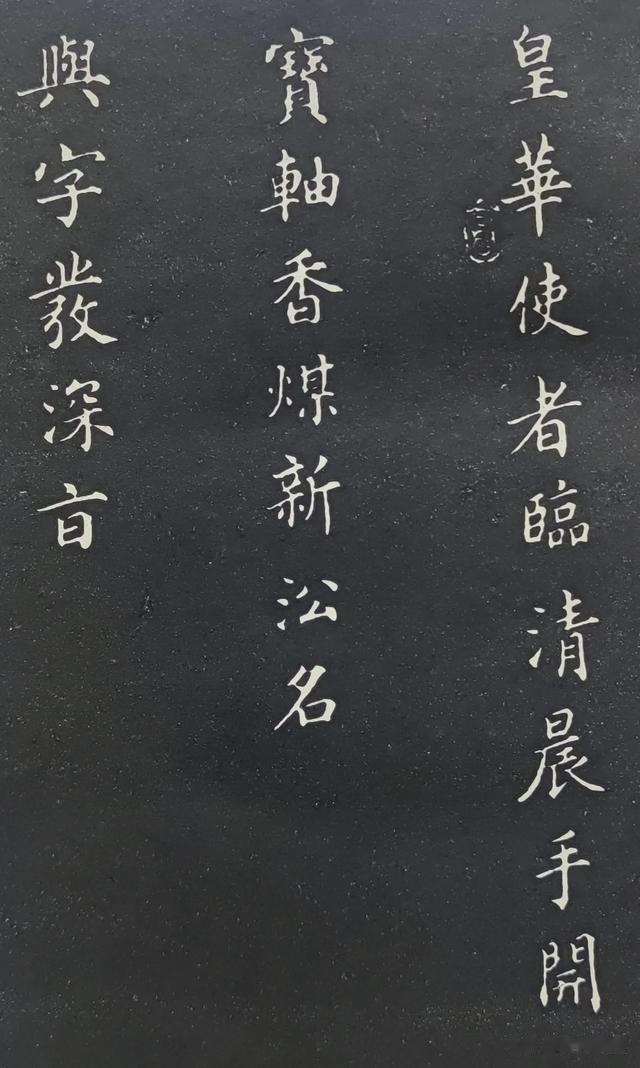 皇華使者臨清晨手開
寶軸香煤新沿名
與字發深㫖